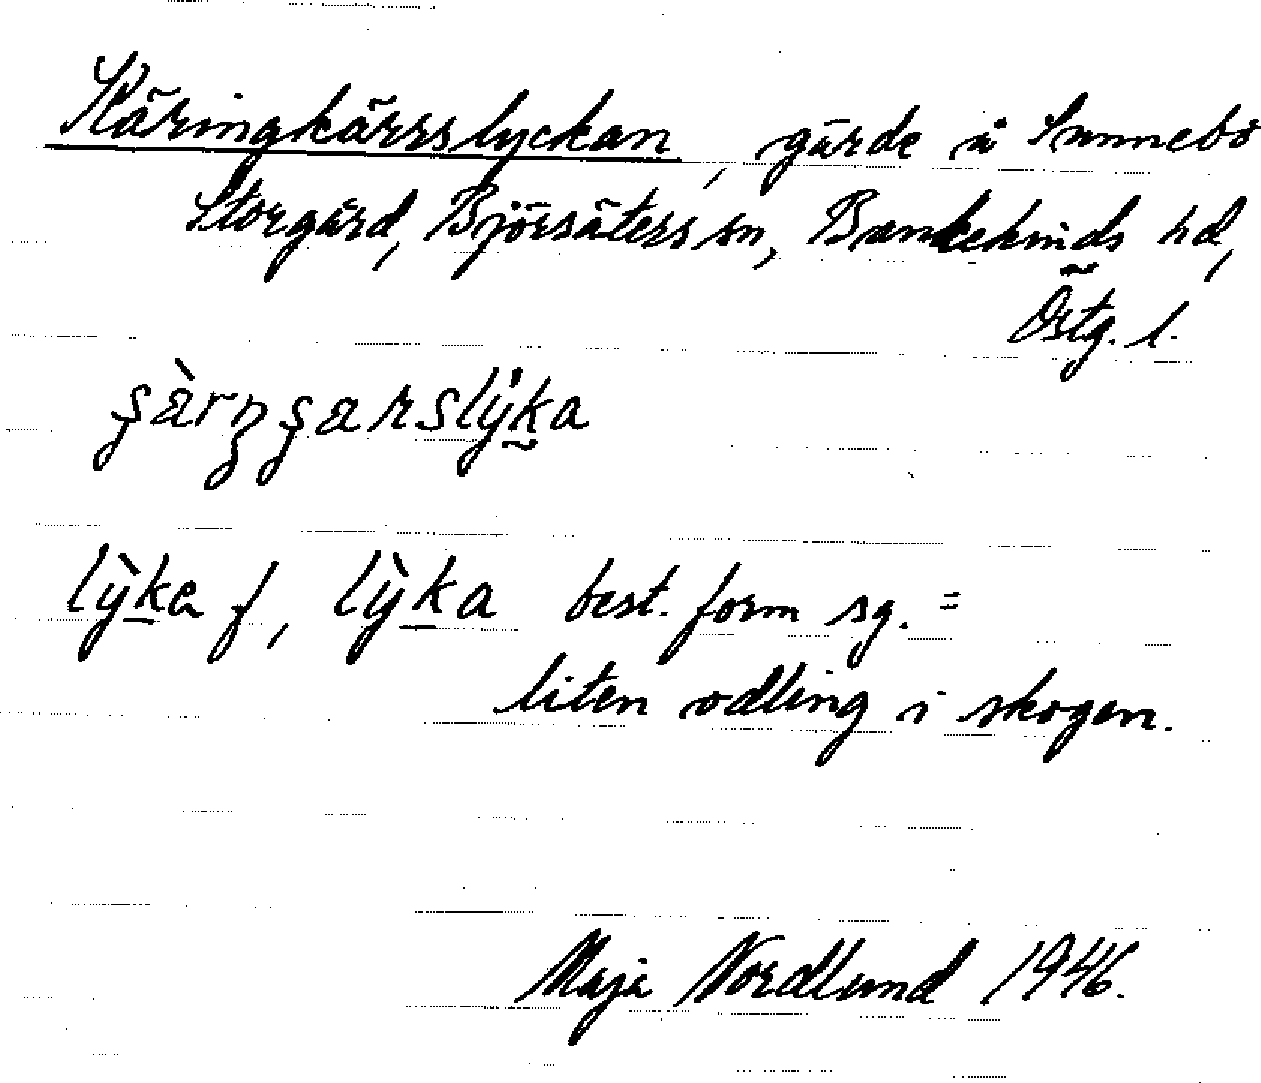 Käringkärrslyckan, gärde å Sunnebo
Storgård, Björsäters sn, Bankekinds hd,
Östg. l.
best. form sg. =
liten odling i skogen.
Maja Nordlund 1946.